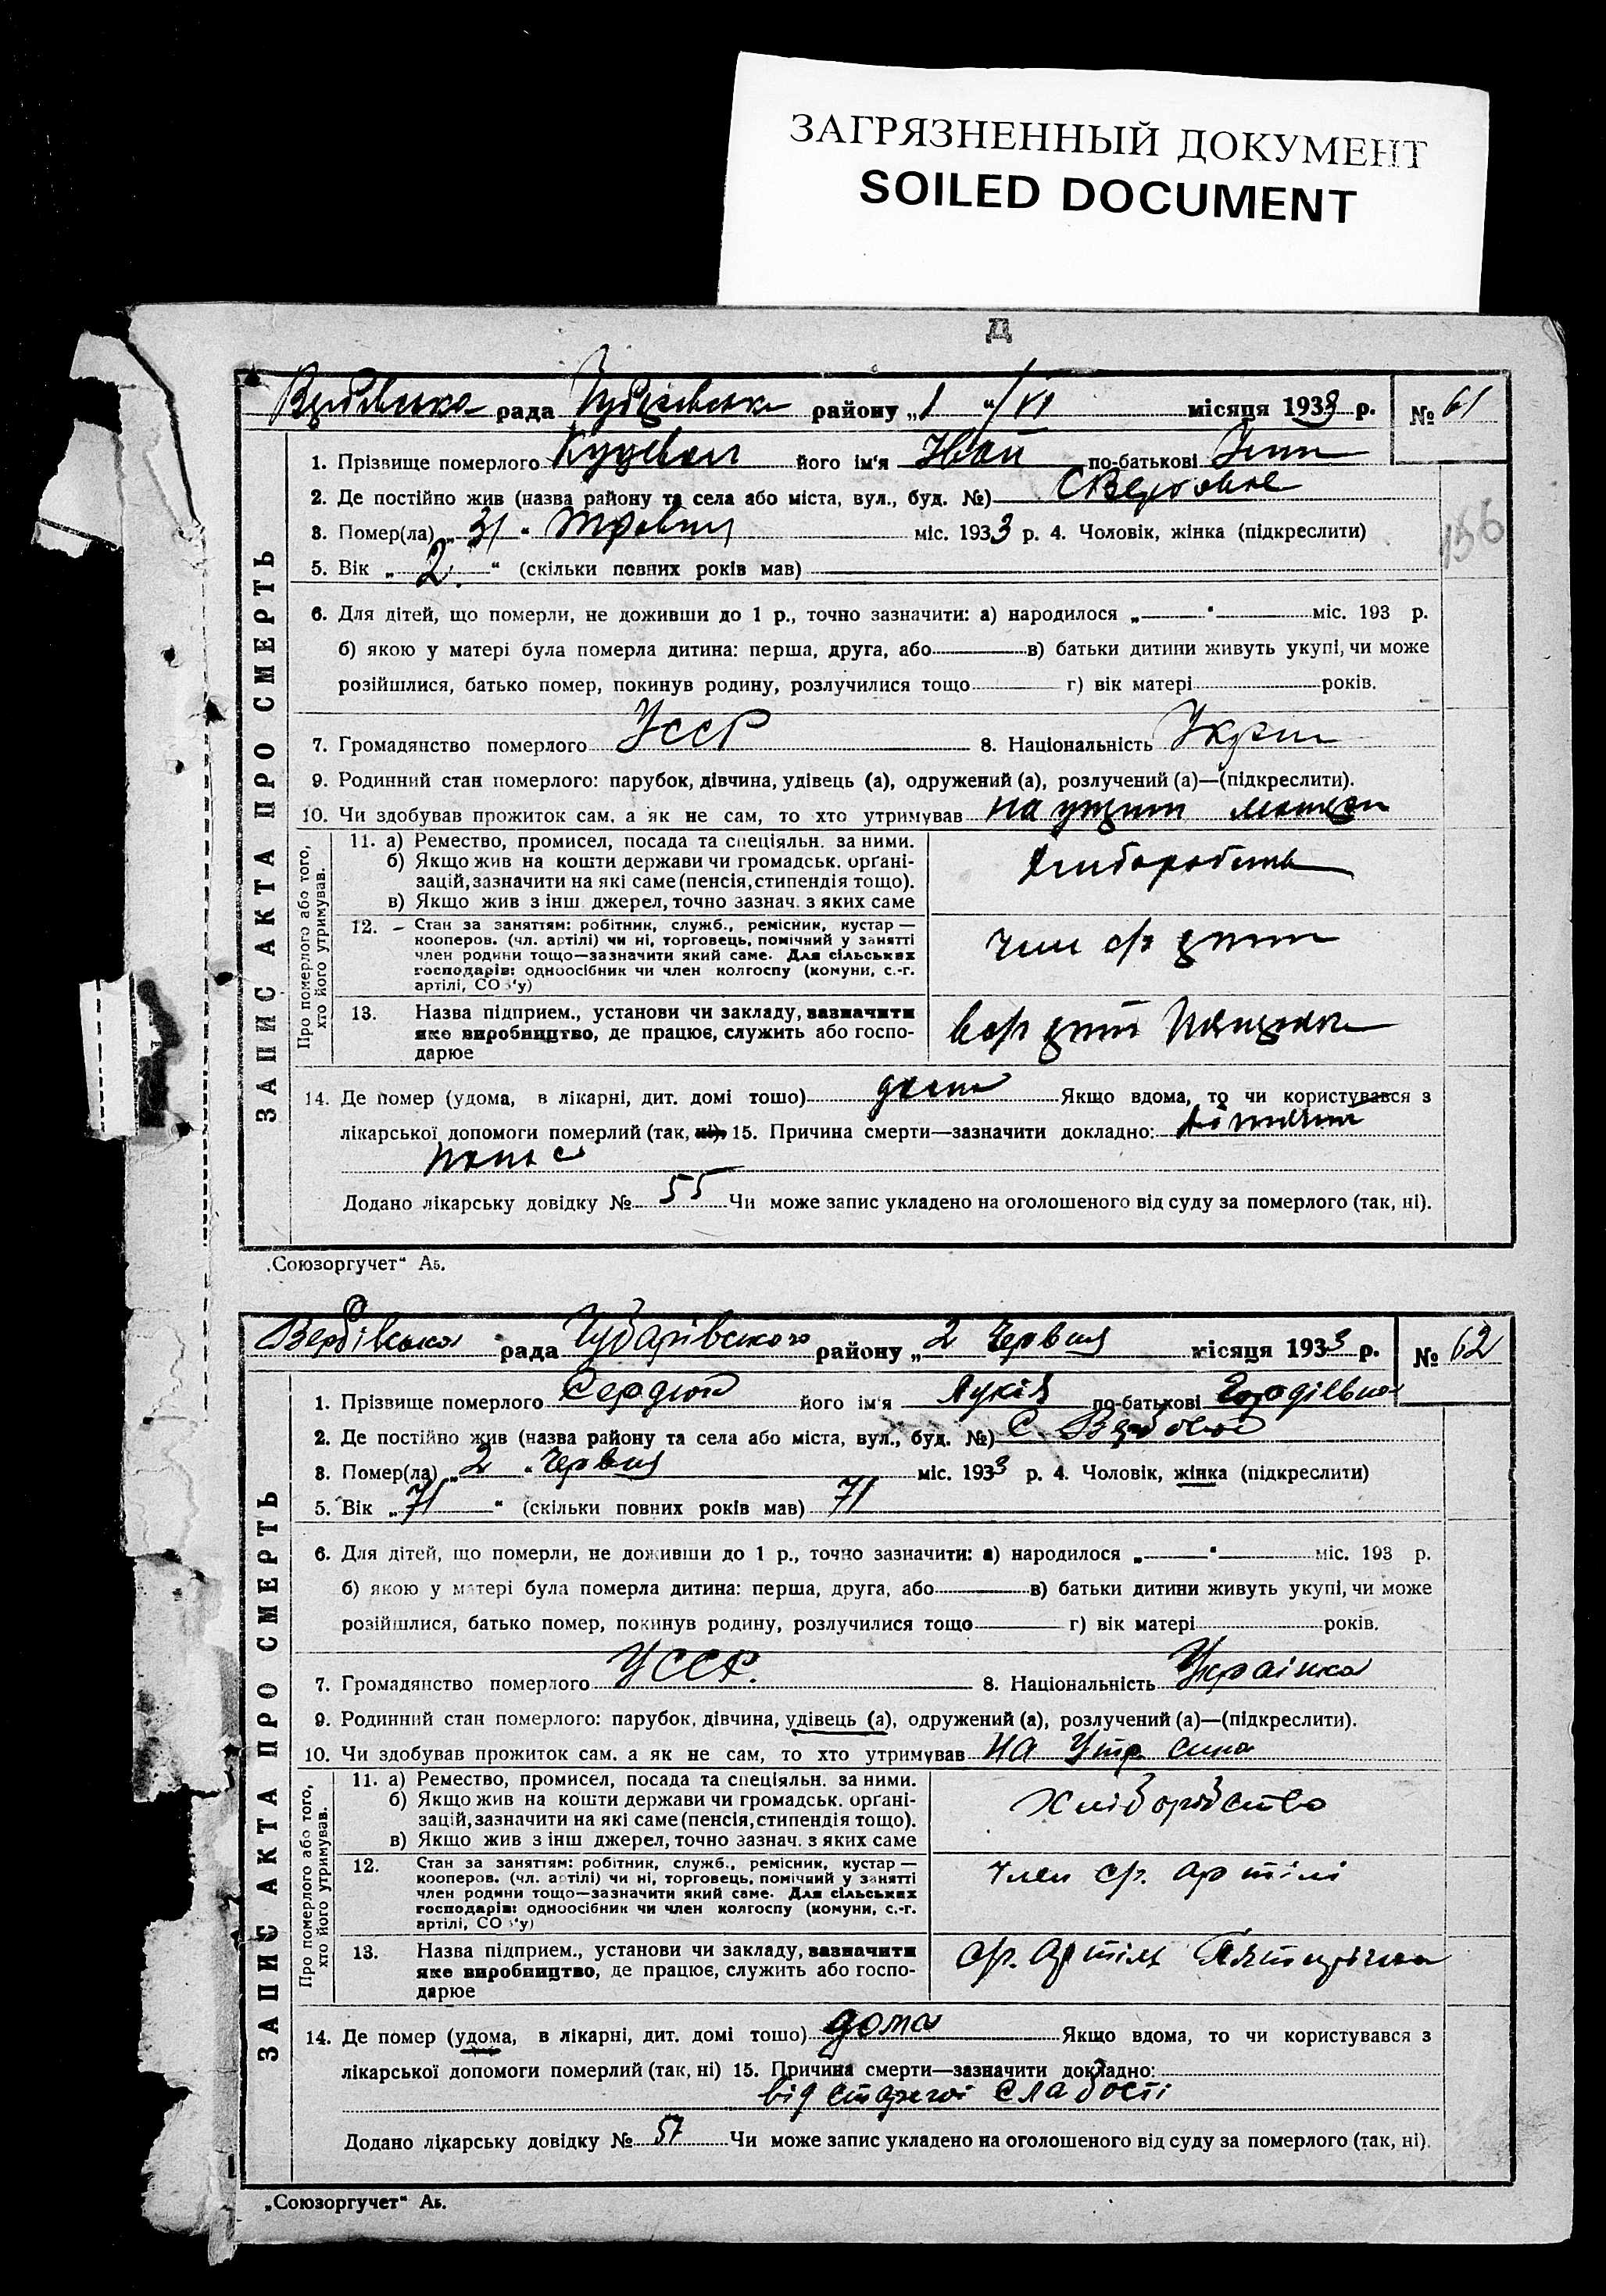 ЗАГРЯЗНЕННЫЙ ДОКУМЕНТ
SOILED DOCUMENT
Д
Вербівська рада Чубарівськ району „1 “/VI місяця 1933 р. № 61
ЗАПИС АКТА ПРО СМЕРТЬ
1. Прізвище померлого його ім'я Іван по-батькові
2. Де постійно жив (назва району та села або міста, вул., буд. №) С Вербове
3. Помер(ла) „31“ Травня міс. 1933 р. 4. Чоловік, жінка (підкреслити)
156
5. Вік „2.“ (скільки повних років мав)
6. Для дітей, що померли, не доживши до 1 р., точно зазначити: а) народилося „—“— міс. 193 р.
б) якою у матері була померла дитина: перша, друга, або — в) батьки дитини живуть укупі, чи може
розійшлися, батько помер, покинув родину, розлучилися тощо — г) вік матері років.
7. Громадянство померлого УССР 8. Національність Украін
9. Родинний стан померлого: парубок, дівчина, удівець (а), одружений (а), розлучений (а)—(підкреслити).
10. Чи здобував прожиток сам, а як не сам, то хто утримував на матери
Про померлого або того, хто його утримував.
11. а) Ремество, промисел, посада та спеціяльн. за ними.
б) Якщо жив на кошти держави чи громадськ. орґані-
зацій, зазначити на які саме (пенсія, стипендія тощо).
в) Якщо жив з інш джерел, точно зазнач. з яких саме
12. — Стан за заняттям: робітник, служб., ремісник, кустар —
кооперов. (чл. артілі) чи ні, торговець, помічний у занятті
член родини тощо—зазначити який саме. Для сільських
господарів: одноосібник чи член колгоспу (комуни, с.-г.
артілі, СО з'у)
член с/г
13. Назва підприєм., установи чи закладу, зазначити
яке виробництво, де працює, служить або госпо-
дарює
14. Де помер (удома, в лікарні, дит. домі тошо) дома Якщо вдома, то чи користувався з
лікарської допомоги померлий (так, ні), 15. Причина смерти—зазначити докладно:
понос
Додано лікарську довідку № 55 Чи може запис укладено на оголошеного від суду за померлого (так, ні).
„Союзоргучет“ А5.
Вербівська рада Чубарівського району „2 Червня місяця 1933 р. № 62
ЗАПИС АКТА ПРО СМЕРТЬ
1. Прізвище померлого Сердюк його ім'я Лукія по-батькові
2. Де постійно жив (назва району та села або міста, вул., буд. №) С. Вербове
3. Помер(ла) „2“ Червня міс. 1933 р. 4. Чоловік, жінка (підкреслити)
5. Вік „71“ (скільки повних років мав) 71
6. Для дітей, що померли, не доживши до 1 р., точно зазначити: а) народилося „—“— міс. 193 р.
б) якою у матері була померла дитина: перша, друга, або — в) батьки дитини живуть укупі, чи може
розійшлися, батько помер, покинув родину, розлучилися тощо — г) вік матері років.
7. Громадянство померлого УССР. 8. Національність Украінка
9. Родинний стан померлого: парубок, дівчина, удівець (а), одружений (а), розлучений (а)—(підкреслити).
10. Чи здобував прожиток сам, а як не сам, то хто утримував на Утр. сина
Про померлого або того, хто його утримував.
11. а) Ремество, промисел, посада та спеціяльн. за ними.
б) Якщо жив на кошти держави чи громадськ. орґані-
зацій, зазначити на які саме (пенсія, стипендія тощо).
в) Якщо жив з інш джерел, точно зазнач. з яких саме
Хліборобство
12. Стан за заняттям: робітник, служб., ремісник, кустар —
кооперов. (чл. артілі) чи ні, торговець, помічний у занятті
член родини тощо—зазначити який саме. Для сільських
господарів: одноосібник чи член колгоспу (комуни, с.-г.
артілі, СО з'у)
член с/г. артілі
13. Назва підприєм., установи чи закладу, зазначити
яке виробництво, де працює, служить або госпо-
дарює
с/г. артіль
14. Де помер (удома, в лікарні, дит. домі тошо) дома Якщо вдома, то чи користувався з
лікарської допомоги померлий (так, ні) 15. Причина смерти—зазначити докладно:
від старечої слабості
Додано лікарську довідку № 57 Чи може запис укладено на оголошеного від суду за померлого (так, ні).
„Союзоргучет“ А5.